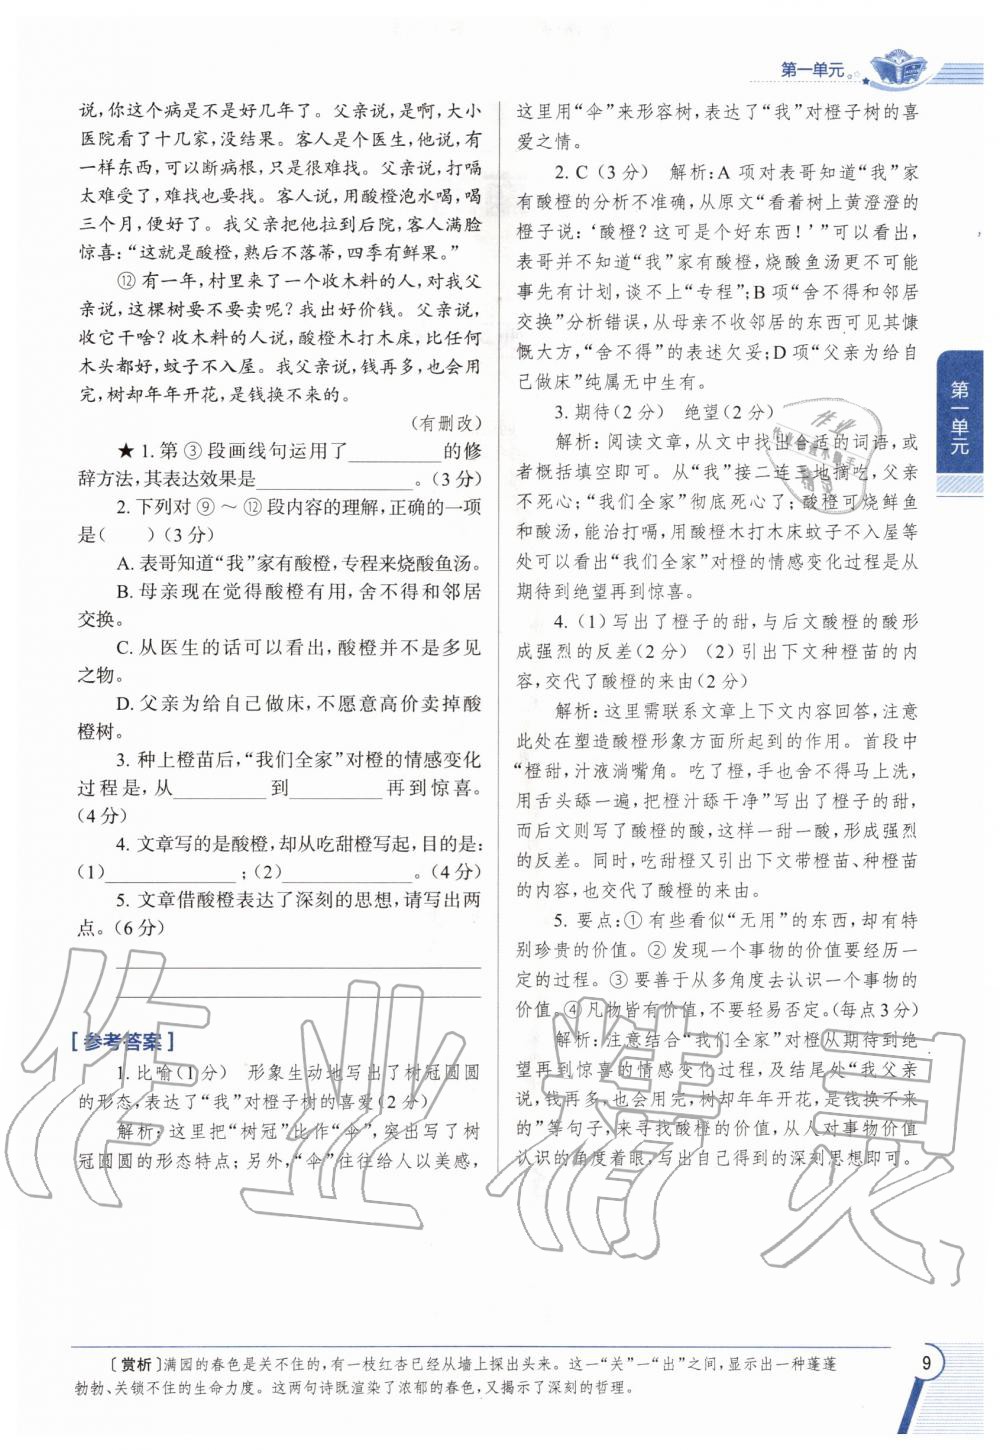 第一单元
说，你这个病是不是好几年了。父亲说，是啊，大小
医院看了十几家，没结果。客人是个医生，他说，有
一样东西，可以断病根，只是很难找。父亲说，打嗝
太难受了，难找也要找。客人说，用酸橙泡水喝，喝
三个月，便好了。我父亲把他拉到后院，客人满脸
惊喜：“这就是酸橙，熟后不落蒂，四季有鲜果。”
⑫ 有一年，村里来了一个收木料的人，对我父
亲说，这棵树要不要卖呢？我出好价钱。父亲说，
收它干啥？收木料的人说，酸橙木打木床，比任何
木头都好，蚊子不入屋。我父亲说，钱再多，也会用
完，树却年年开花，是钱换不来的。
（有删改）
★ 1. 第 ③ 段画线句运用了__________的修
辞方法，其表达效果是________________。（3 分）
2. 下列对 ⑨ ～ ⑫ 段内容的理解，正确的一项
是（　　）（3 分）
A. 表哥知道“我”家有酸橙，专程来烧酸鱼汤。
B. 母亲现在觉得酸橙有用，舍不得和邻居
交换。
C. 从医生的话可以看出，酸橙并不是多见
之物。
D. 父亲为给自己做床，不愿意高价卖掉酸
橙树。
3. 种上橙苗后，“我们全家”对橙的情感变化
过程是，从__________到__________再到惊喜。
（4 分）
4. 文章写的是酸橙，却从吃甜橙写起，目的是：
(1)______________；(2)______________。（4 分）
5. 文章借酸橙表达了深刻的思想，请写出两
点。（6 分）
[ 参考答案 ]
1. 比喻（1 分）　形象生动地写出了树冠圆圆
的形态，表达了“我”对橙子树的喜爱（2 分）
解析：这里把“树冠”比作“伞”，突出写了树
冠圆圆的形态特点；另外，“伞”往往给人以美感，
这里用“伞”来形容树，表达了“我”对橙子树的喜
爱之情。
2. C（3 分）　解析：A 项对表哥知道“我”家
有酸橙的分析不准确，从原文“看着树上黄澄澄的
橙子说：‘酸橙？这可是个好东西！’”可以看出，
表哥并不知道“我”家有酸橙，烧酸鱼汤更不可能
事先有计划，谈不上“专程”；B 项“舍不得和邻居
交换”分析错误，从母亲不收邻居的东西可见其慷
慨大方，“舍不得”的表述欠妥；D 项“父亲为给自
己做床”纯属无中生有。
3. 期待（2 分）　绝望（2 分）
解析：阅读文章，从文中找出合适的词语，或
者概括填空即可。从“我”接二连三地摘吃，父亲
不死心；“我们全家”彻底死心了；酸橙可烧鲜鱼
和酸汤，能治打嗝，用酸橙木打木床蚊子不入屋等
处可以看出“我们全家”对橙的情感变化过程是从
期待到绝望再到惊喜。
4.（1）写出了橙子的甜，与后文酸橙的酸形
成强烈的反差（2 分）（2）引出下文种橙苗的内
容，交代了酸橙的来由（2 分）
解析：这里需联系文章上下文内容回答，注意
此处在塑造酸橙形象方面所起到的作用。首段中
“橙甜，汁液淌嘴角。吃了橙，手也舍不得马上洗，
用舌头舔一遍，把橙汁舔干净”写出了橙子的甜，
而后文则写了酸橙的酸，这样一甜一酸，形成强烈
的反差。同时，吃甜橙又引出下文带橙苗、种橙苗
的内容，也交代了酸橙的来由。
5. 要点：① 有些看似“无用”的东西，却有特
别珍贵的价值。② 发现一个事物的价值要经历一
定的过程。③ 要善于从多角度去认识一个事物的
价值。④ 凡物皆有价值，不要轻易否定。（每点 3 分）
解析：注意结合“我们全家”对橙从期待到绝
望再到惊喜的情感变化过程，及结尾处“我父亲
说，钱再多，也会用完，树却年年开花，是钱换不来
的”等句子，来寻找酸橙的价值，从人对事物价值
认识的角度着眼，写出自己得到的深刻思想即可。
第一单元
作业精灵
[ 赏析 ] 满园的春色是关不住的，有一枝红杏已经从墙上探出头来。这一“关”一“出”之间，显示出一种蓬蓬
勃勃、关锁不住的生命力度。这两句诗既渲染了浓郁的春色，又揭示了深刻的哲理。
9